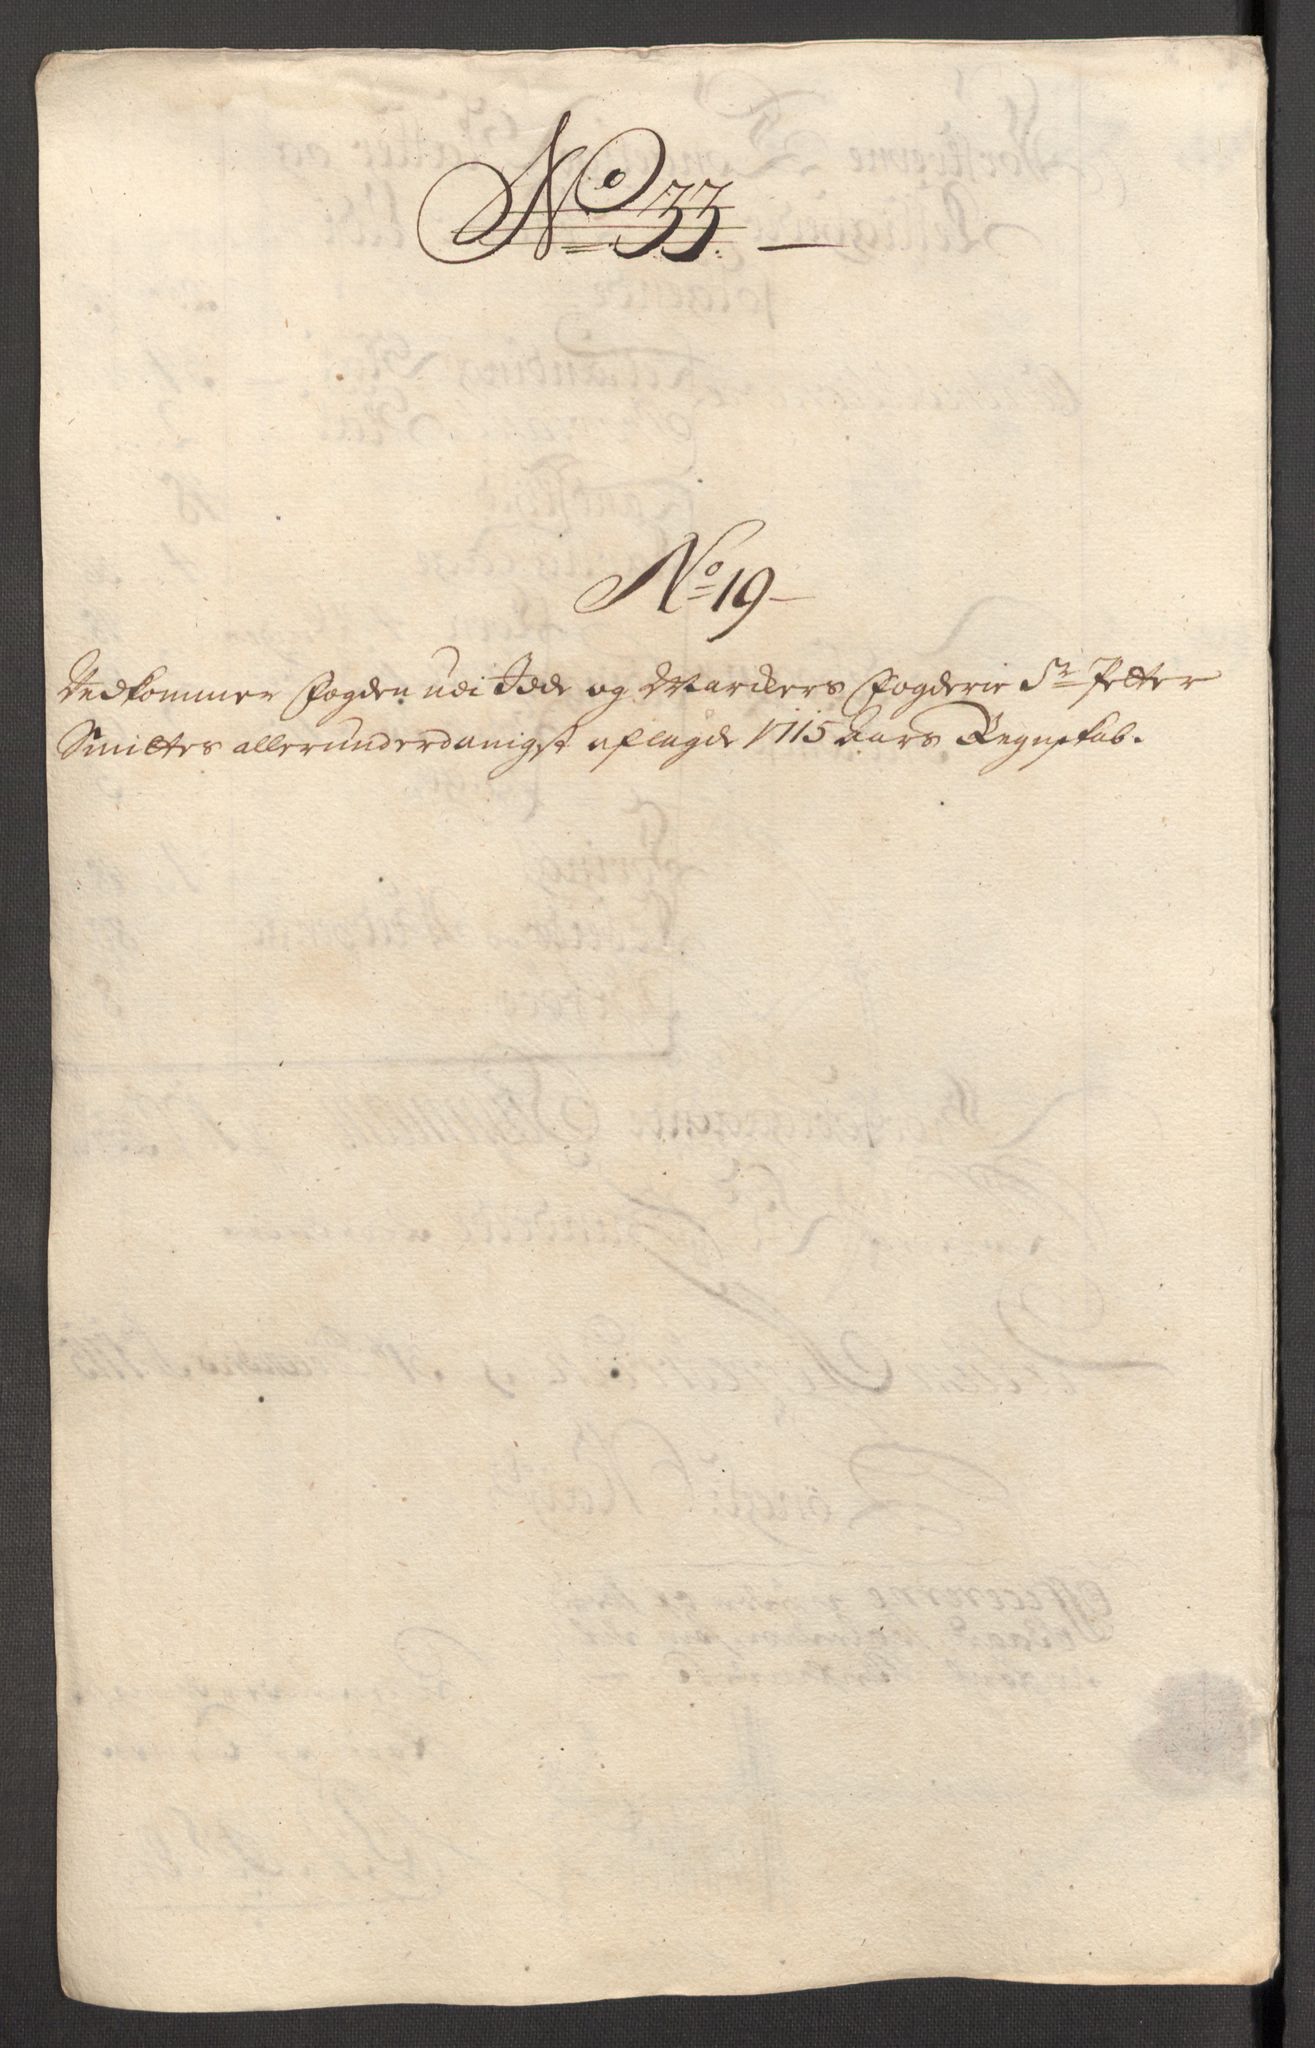 No 33.
No 19
Vedkommer Fogden udi Idde og Marckers Fogderie Sr Petter
Smittes allerunderdanigst aflagde 1715 Aars Regnskab.